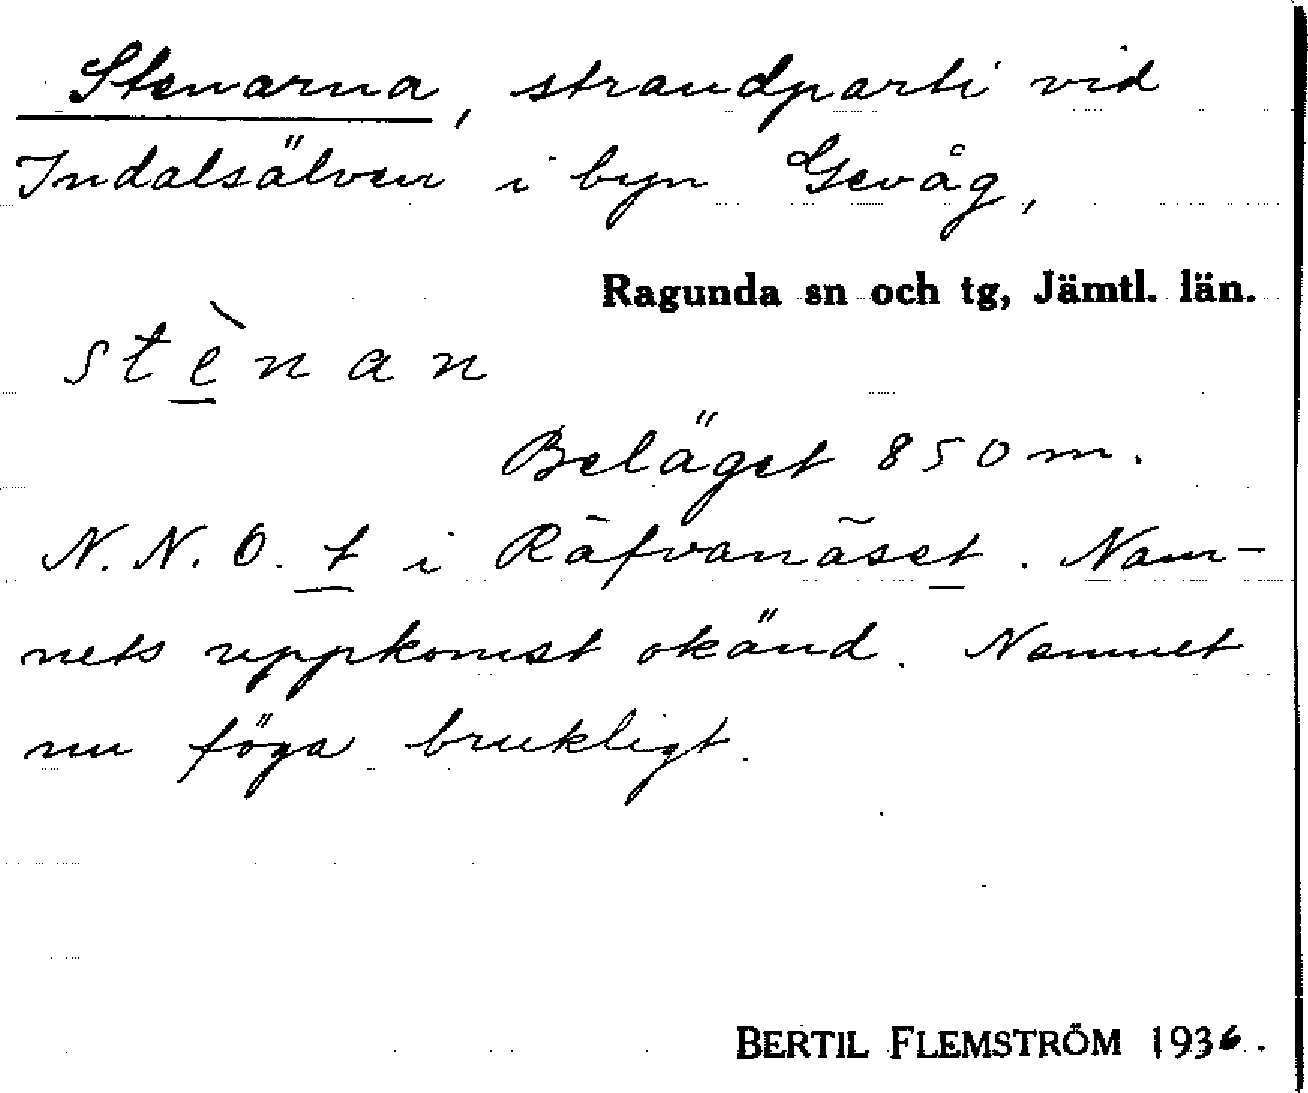 Stenarna, strandparti vid
Indalsälven i byn Gevåg,
Ragunda sn och tg, Jämtl. län.
stènan
Beläget 850 m.
N.N.O. t i Räfvanäset. Nam-
nets uppkomst okänd. Namnet
nu föga brukligt.
BERTIL FLEMSTRÖM 1936.